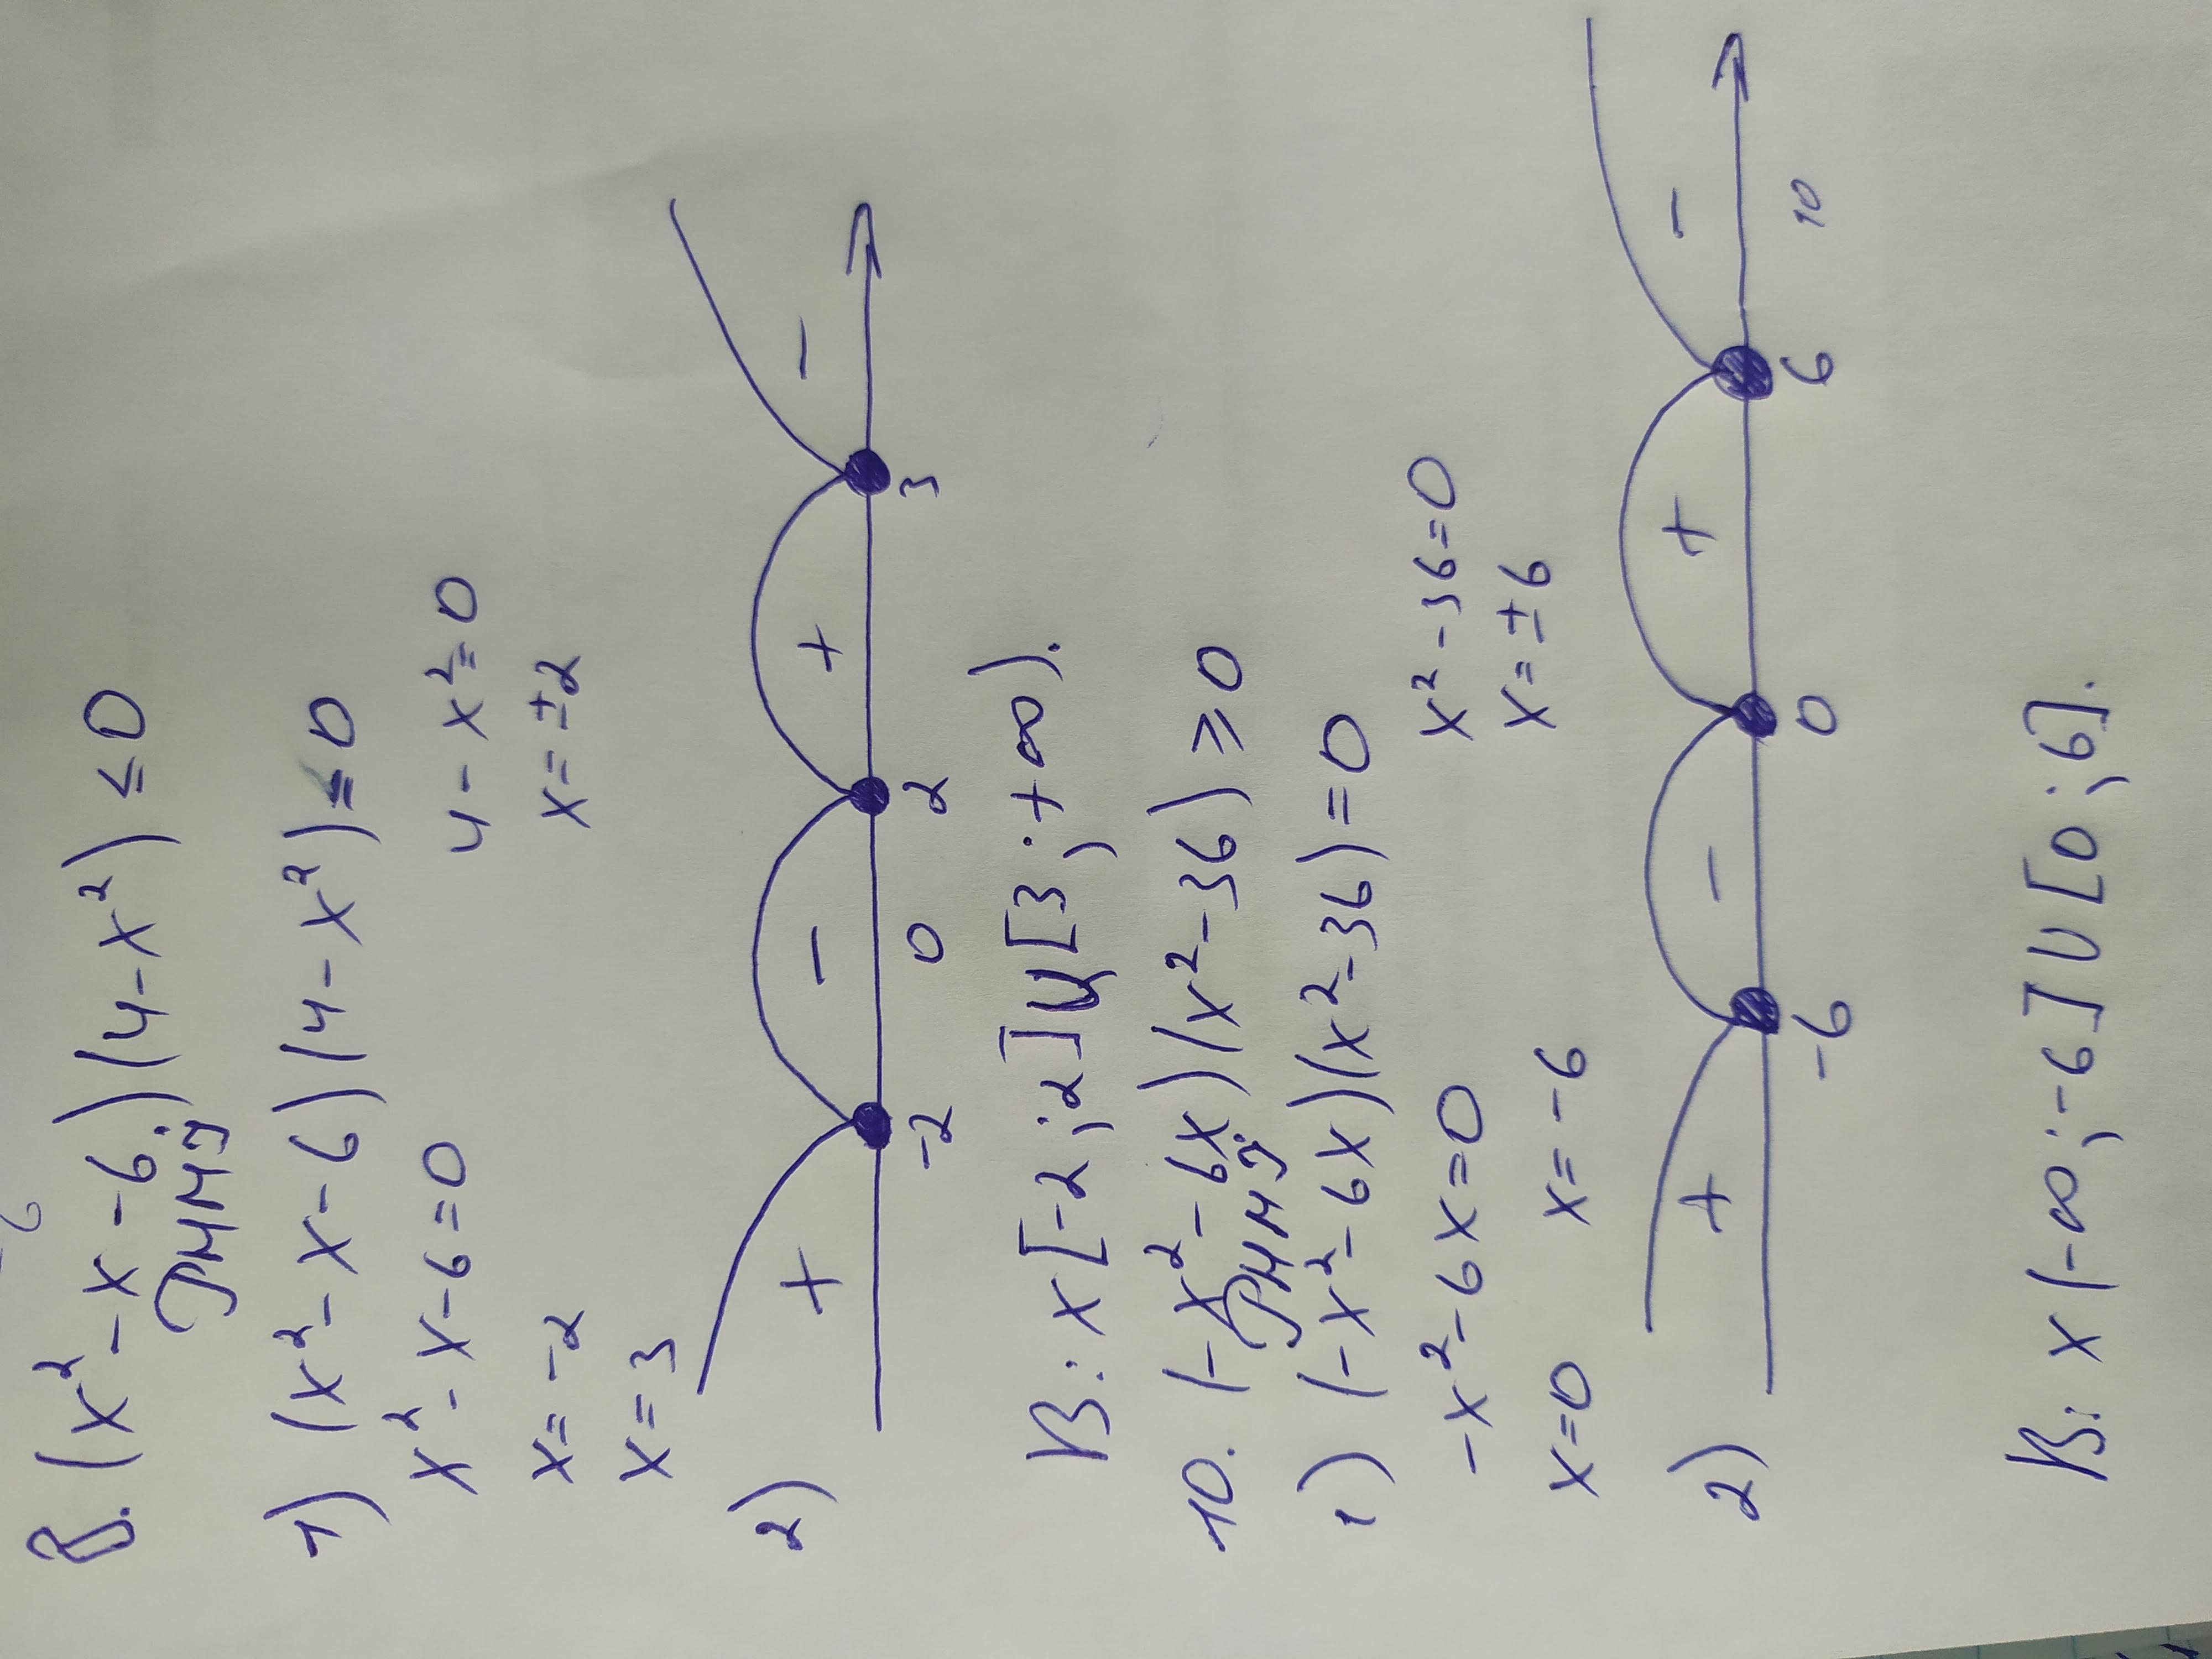 8. (x² - x - 6)(4 - x²) ≤ 0
1) (x² - x - 6)(4 - x²) = 0
x² - x - 6 = 0 4 - x² = 0
x = -2 x = ±2
x = 3
2) + - + -
-2 0 2 3
В: x [-2; 2] U [3; +∞).
10. (-x² - 6x)(x² - 36) ≥ 0
1) (-x² - 6x)(x² - 36) = 0
-x² - 6x = 0 x² - 36 = 0
x = 0 x = -6 x = ±6
2) + - + -
-6 0 6 10
В: x (-∞; -6] U [0; 6].